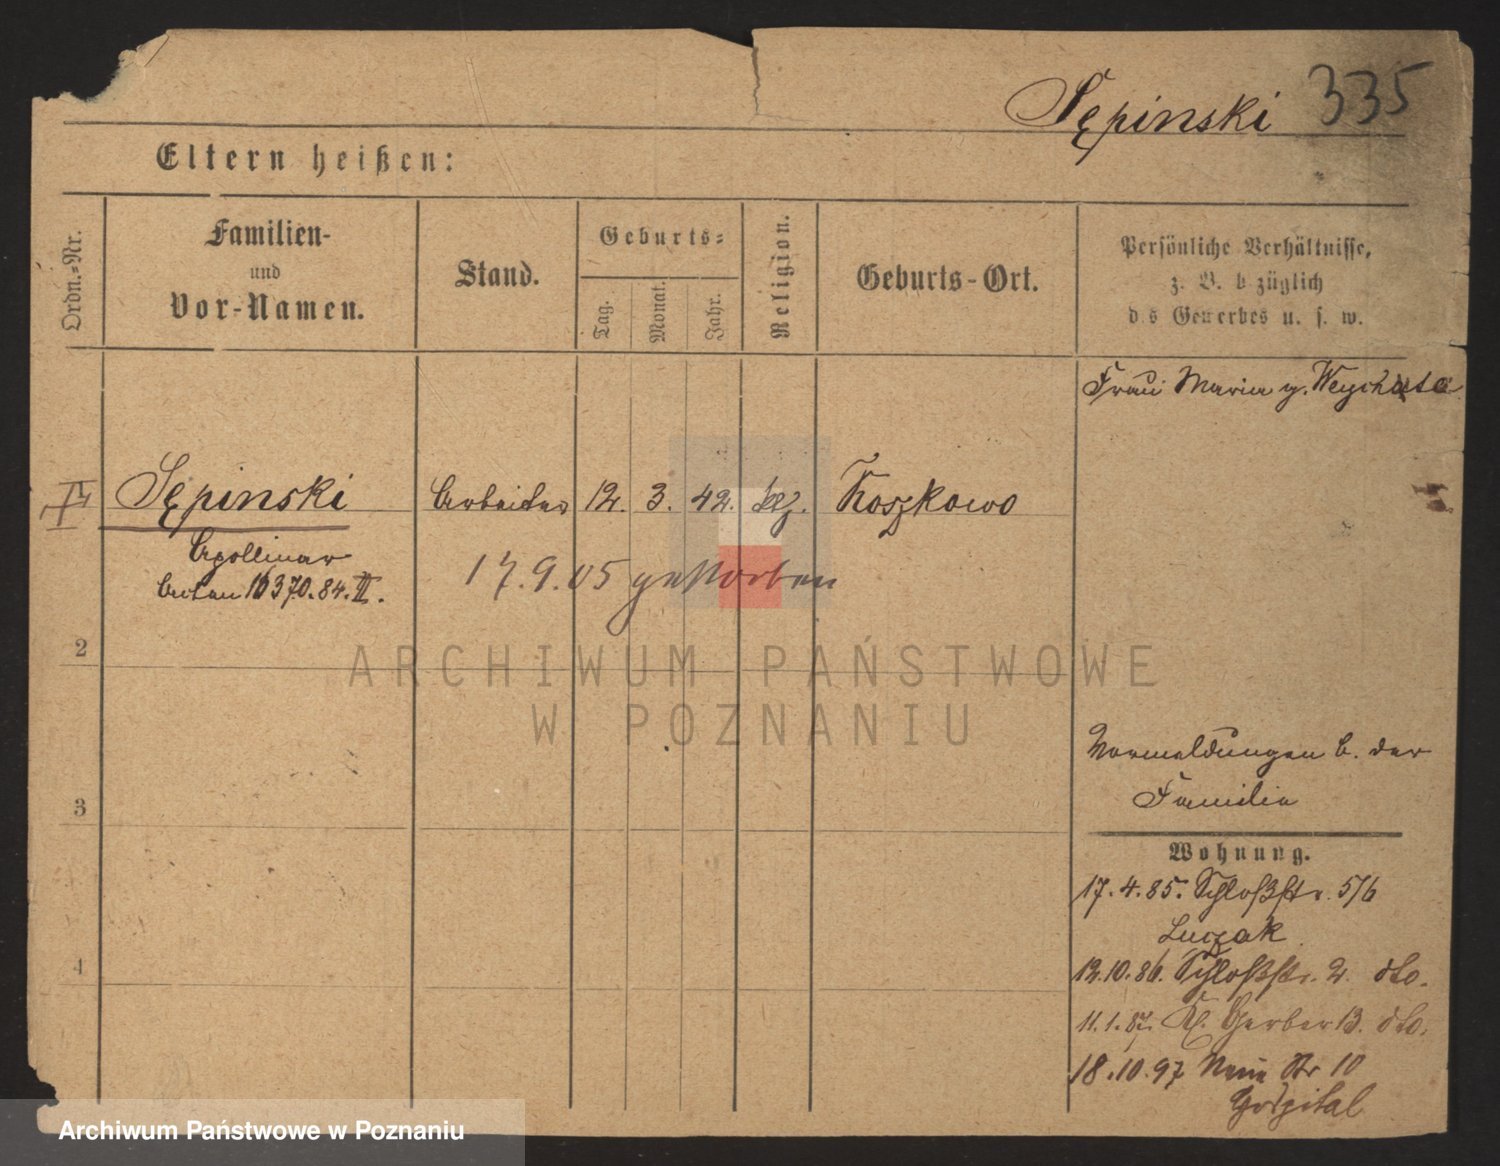 Sępinski 335
Eltern heißen:
Ordn.-Nr.
Familien-
und
Vor-Namen.
Stand.
Geburts-
Tag.
Monat.
Jahr.
Religion.
Geburts-Ort.
Persönliche Verhältnisse,
z. B. b züglich
d s Gewerbes u. s. w.
Frau Maria g.
Sępinski Arbeiter 12. 3. 42. Koszkowo
Apollinar
Acten 10370.84.II.
17.9.05 gestorben
2
ARCHIWUM PAŃSTWOWE
W POZNANIU
Vormeldungen b. der
Familie
3
Wohnung.
17.4.85. Schloßstr. 5/6
Luczak
4
12.10.86. Schloßstr. 2. dto.
11.1.87. Kl. Gerber 13. dto.
18.10.97 Neue Str 10
Hospital
Archiwum Państwowe w Poznaniu